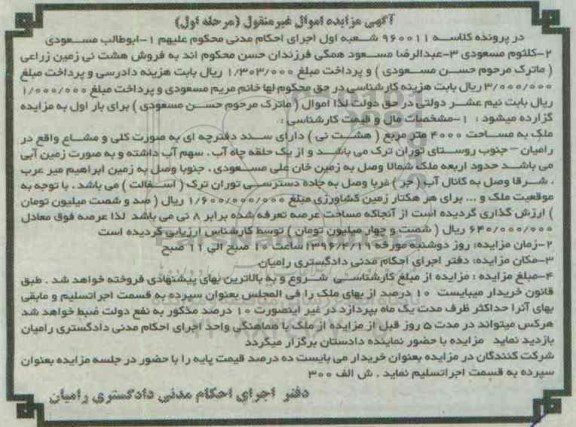 آگهی مزایده اموال غیرمنقول (مرحله اول)
در پرونده کلاسه ۹۶۰۰۱۱ شعبه اول اجرای احکام مدنی محکوم علیهم ۱-ابوطالب مسعودی
۲-کلثوم مسعودی ۳-عبدالرضا مسعود همگی فرزندان حسن محکوم اند به فروش هشت نی زمین زراعی
( ماترک مرحوم حسن مسعودی ) و پرداخت مبلغ ۱/۳۰۳/۰۰۰ ریال بابت هزینه دادرسی و پرداخت مبلغ
۳/۰۰۰/۰۰۰ ریال بابت هزینه کارشناسی در حق محکوم لها خانم مریم مسعودی و پرداخت مبلغ ۱/۰۰۰/۰۰۰
ریال بابت نیم عشر دولتی در حق دولت لذا اموال ( ماترک مرحوم حسن مسعودی ) برای بار اول به مزایده
گزارده میشود : ۱-مشخصات مال و قیمت کارشناسی :
ملک به مساحت ۴۰۰۰ متر مربع ( هشت نی ) دارای سند دفترچه ای به صورت کلی و مشاع واقع در
رامیان – جنوب روستای توران ترک می باشد و از یک حلقه چاه آب ، سهم آب داشته و به صورت زمین آبی
می باشد حدود اربعه ملک شمالا وصل به زمین خان علی مسعودی ، جنوبا وصل به زمین ابراهیم میر عرب
، شرقا وصل به کانال آب ( جر ) غربا وصل به جاده دسترسی توران ترک ( آسفالت ) می باشد . با توجه به
موقعیت ملک و ... برای هر هکتار زمین کشاورزی مبلغ ۱/۶۰۰/۰۰۰/۰۰۰ ریال ( صد و شصت میلیون تومان
) ارزش گذاری گردیده است از آنجاکه مساحت عرصه تعرفه شده برابر ۸ نی می باشد لذا عرصه فوق معادل
۶۴۰/۰۰۰/۰۰۰ ریال ( شصت و چهار میلیون تومان ) توسط کارشناس ارزیابی گردیده است
۲-زمان مزایده: روز دوشنبه مورخه ۱۳۹۶/۴/۱۹ ساعت ۱۰ صبح الی ۱۱ صبح
۳-مکان مزایده: دفتر اجرای احکام مدنی دادگستری رامیان
۴-مبلغ مزایده : مزایده از مبلغ کارشناسی شروع و به بالاترین بهای پیشنهادی فروخته خواهد شد . طبق
قانون خریدار میبایست ۱۰ درصد از بهای ملک را فی المجلس بعنوان سپرده به قسمت اجراتسلیم و مابقی
بهای آنرا حداکثر ظرف مدت یک ماه بپردازد در غیر اینصورت ۱۰ درصد مذکور به نفع دولت ضبط خواهد شد
هرکس میتواند در مدت ۵ روز قبل از مزایده از ملک با هماهنگی واحد اجرای احکام مدنی دادگستری رامیان
بازدید نماید مزایده با حضور نماینده دادستان برگزار میگردد
شرکت کنندگان در مزایده بعنوان خریدار می بایست ده درصد قیمت پایه را با حضور در جلسه مزایده بعنوان
سپرده به قسمت اجراتسلیم نماید . ش الف ۳۰۰
دفتر اجرای احکام مدنی دادگستری رامیان